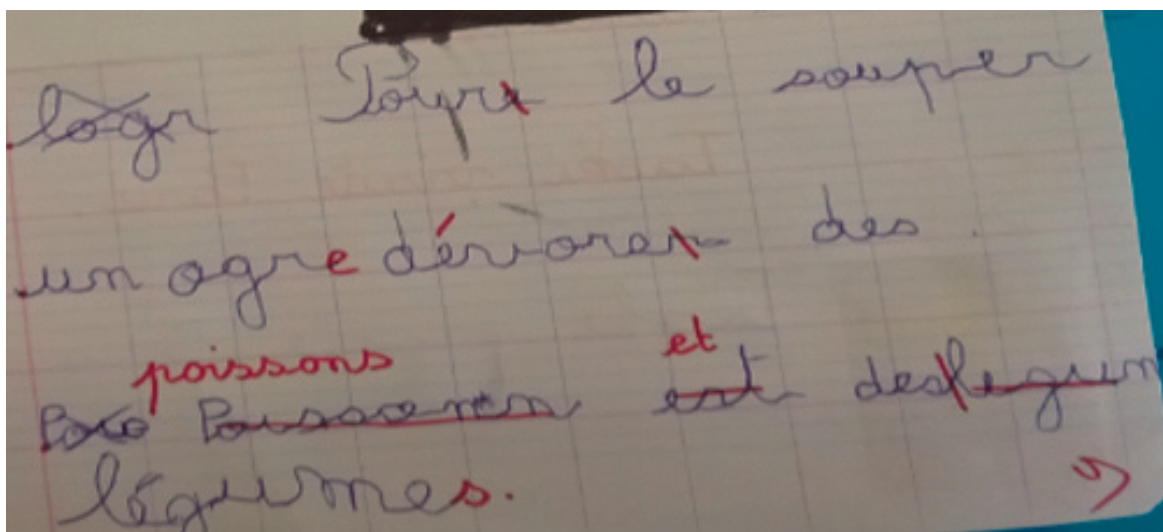 logr Pour le souper
un ogre dévore des
poissons et
Poissonen est des legum
légumes.